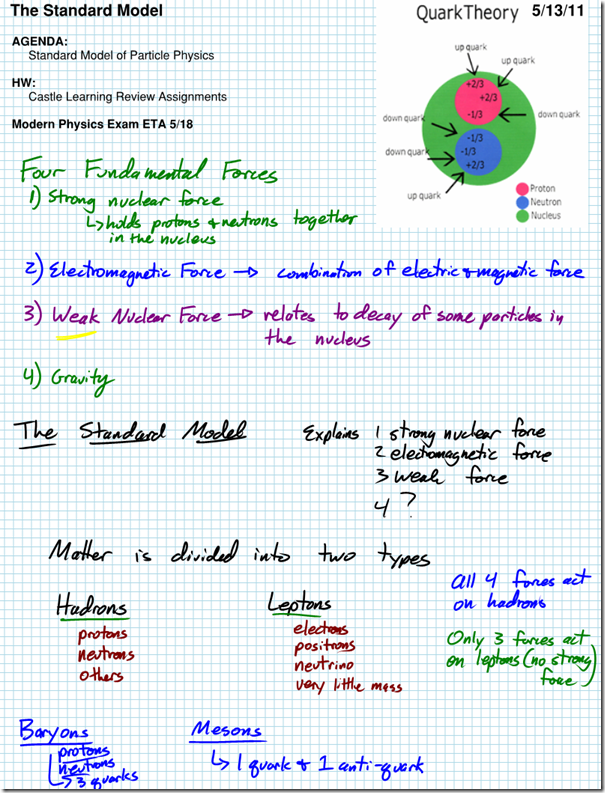 The Standard Model
QuarkTheory 5/13/11
AGENDA:
Standard Model of Particle Physics
HW:
Castle Learning Review Assignments
Modern Physics Exam ETA 5/18
up quark
up quark
+2/3
+2/3
-1/3
down quark
down quark
-1/3
down quark
-1/3
+2/3
up quark
Proton
Neutron
Nucleus
Four Fundamental Forces
1) Strong nuclear force
↳ holds protons & neutrons together
in the nucleus
2) Electromagnetic Force → combination of electric & magnetic force
3) Weak Nuclear Force → relates to decay of some particles in
the nucleus
4) Gravity
The Standard Model Explains 1 strong nuclear force
2 electromagnetic force
3 weak force
4 ?
Matter is divided into two types
All 4 forces act
on hadrons
Hadrons
protons
neutrons
others
Leptons
electrons
positrons
neutrino
very little mass
Only 3 forces act
on leptons (no strong
force)
Baryons
protons
neutrons
↳ 3 quarks
Mesons
↳ 1 quark & 1 anti-quark